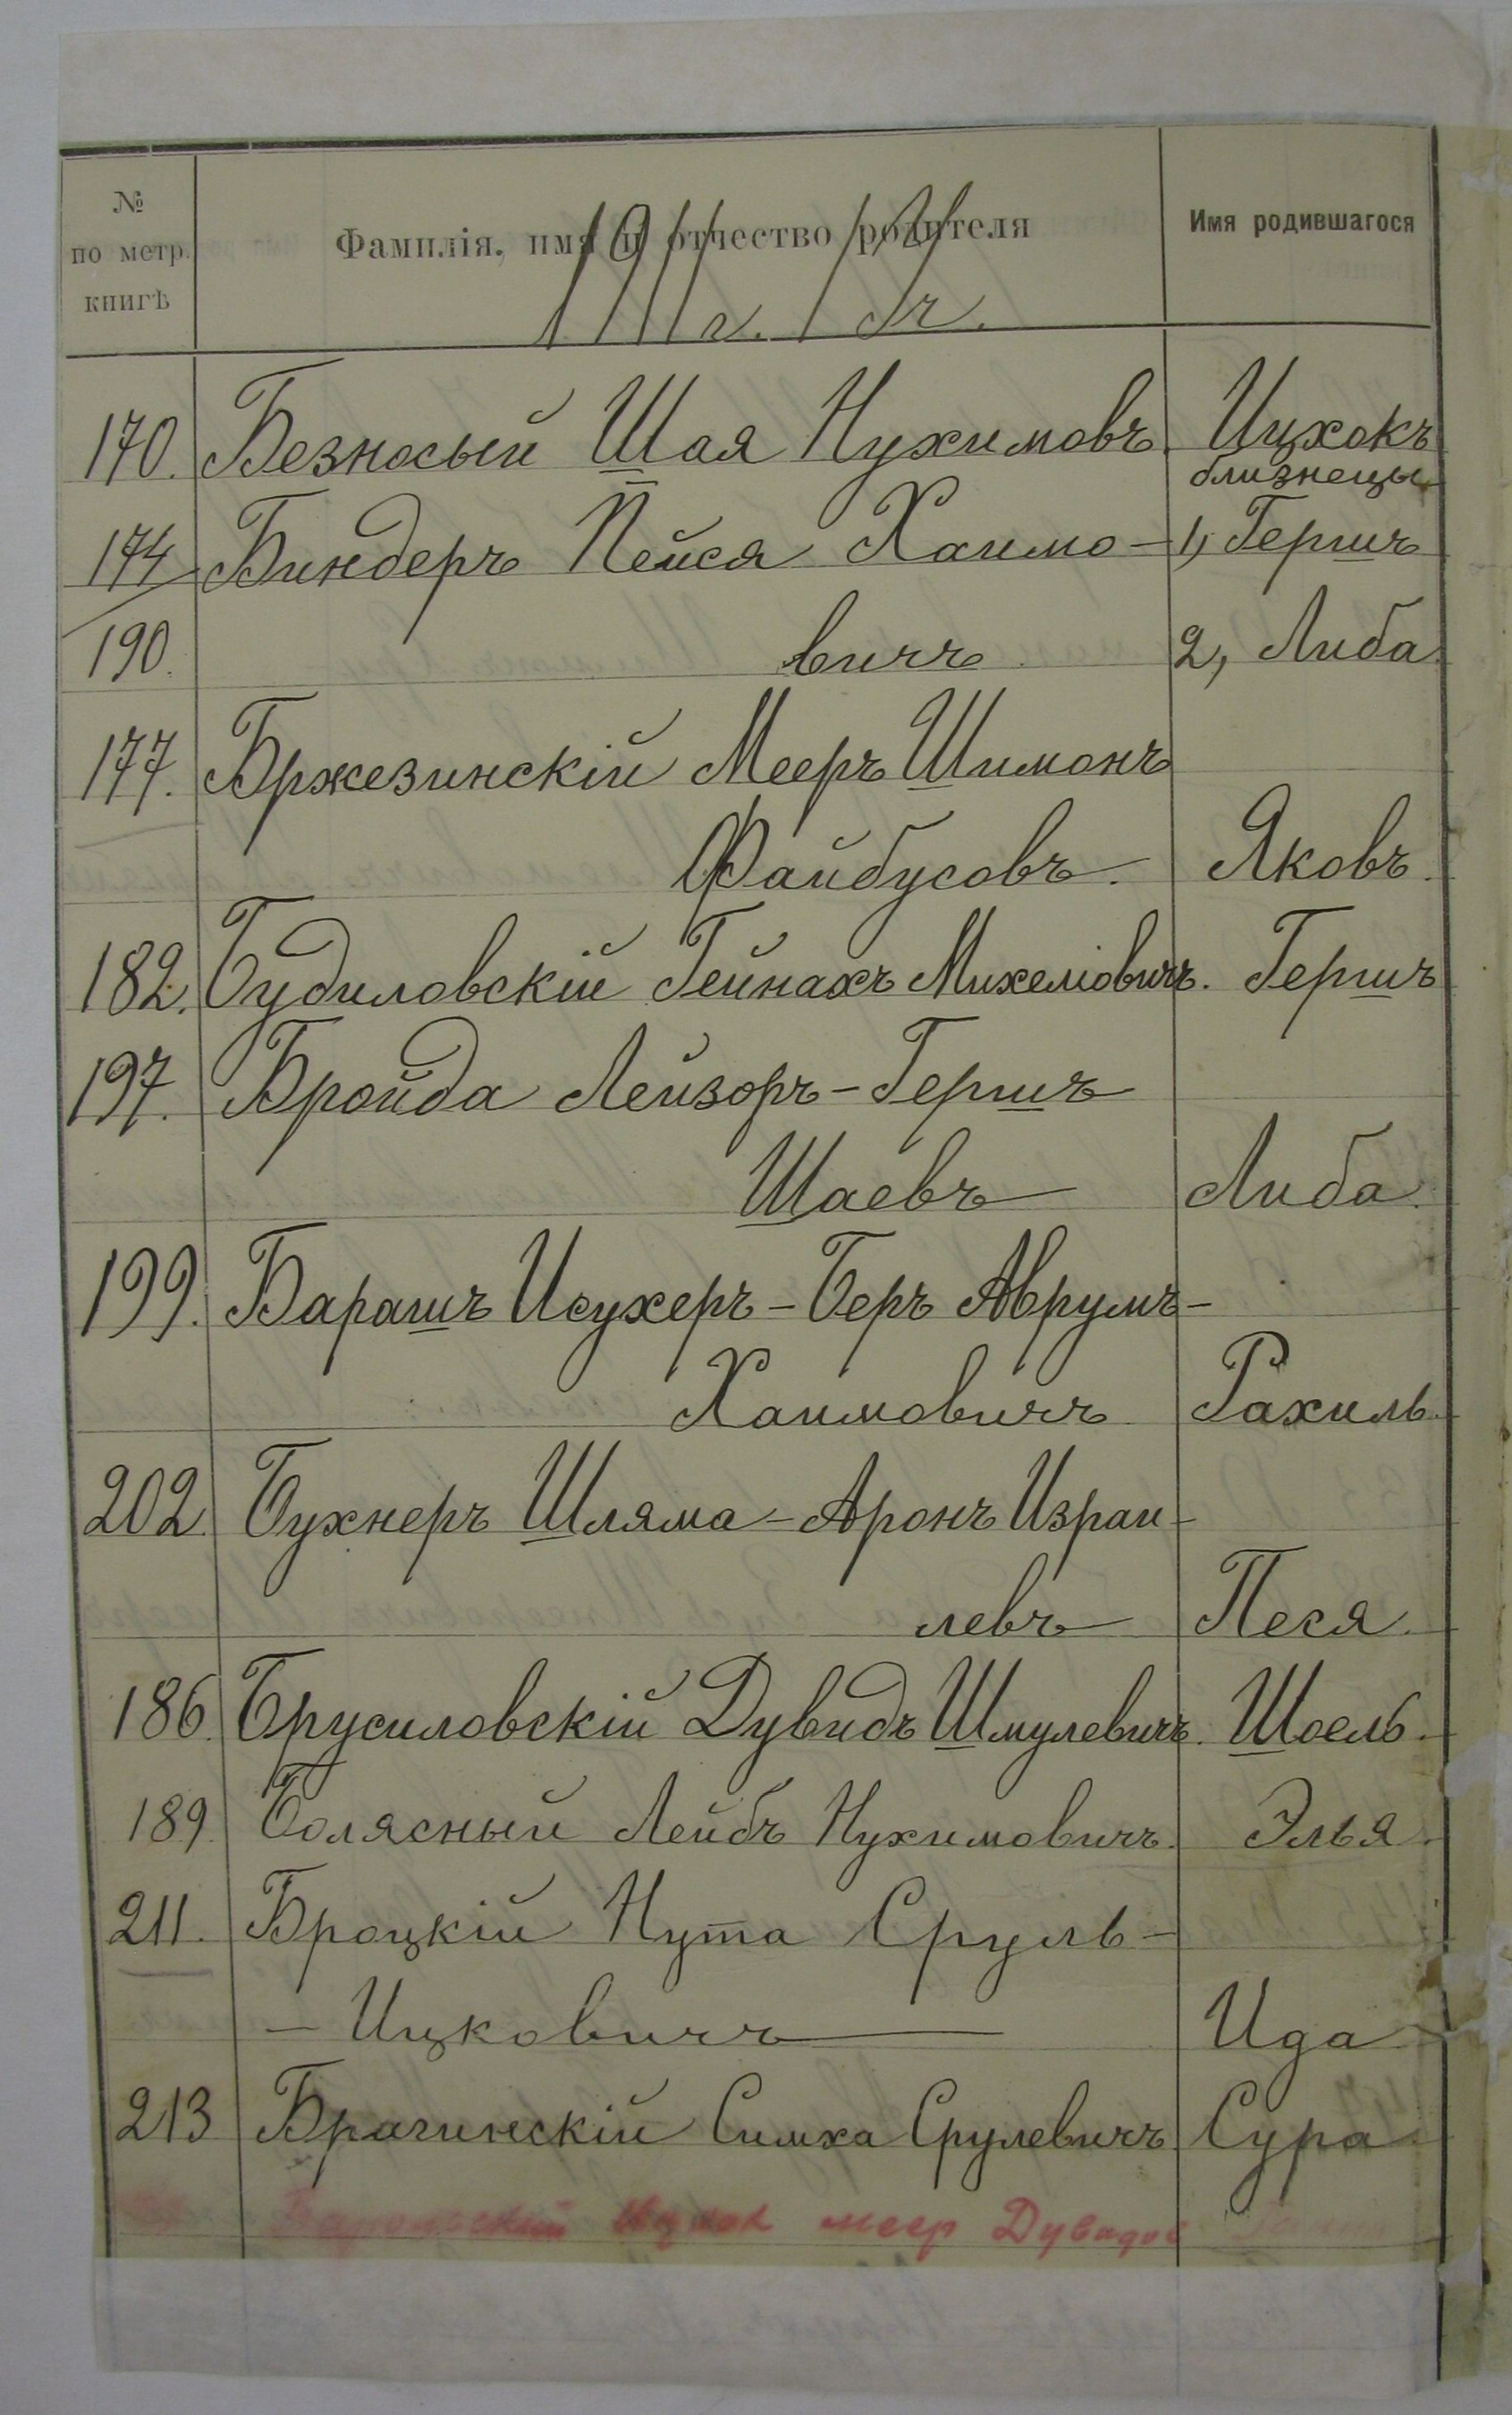 № по метр. книгѣ Фамилія, имя и отчество родителя Имя родившагося
170. Безносый Шая Нухимовъ. Ицхокъ
близнецы
174 Биндеръ Пейся Хаимо- 1, Гершъ
190. вичъ 2, Либа
177. Бржезинскій Мееръ Шимонъ
Файбусовъ. Яковъ.
182. Будиловскій Гейнахъ Михеліовичъ. Гершъ
197. Бройда Лейзоръ-Гершъ
Шаевъ Либа.
199. Барашъ Исухеръ-Беръ Аврумъ-
Хаимовичъ Рахиль.
202. Бухнеръ Шляма-Аронъ Израи-
левъ Песя.
186. Брусиловскій Дувидъ Шмулевичъ. Шоель.
189. Болясный Лейбъ Нухимовичъ. Элья.
211. Броцкій Нута Сруль-
-Ицковичъ Ида
213 Брагинскій Симха Срулевичъ. Сура.
меер Дувидов